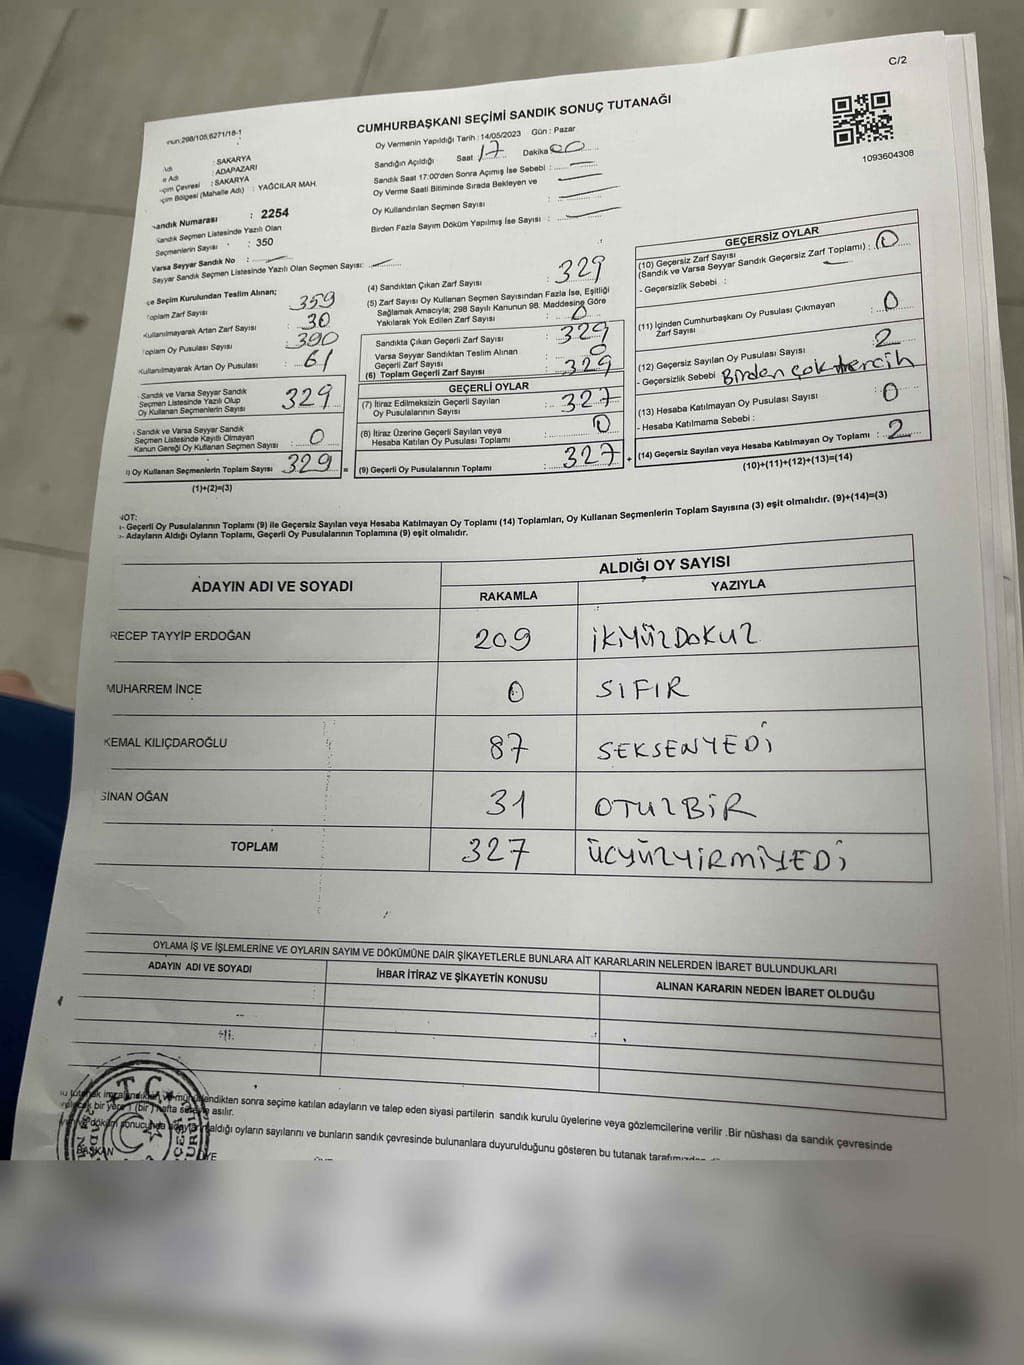 C/2
CUMHURBAŞKANI SEÇİMİ SANDIK SONUÇ TUTANAĞI
nun:298/105,6271/18-1
Oy Vermenin Yapıldığı Tarih : 14/05/2023 Gün : Pazar
Sandığın Açıldığı Saat 17 Dakika 00
Sandık Saat 17:00'den Sonra Açımış İse Sebebi :
Oy Verme Saati Bitiminde Sırada Bekleyen ve
Oy Kullandırılan Seçmen Sayısı :
Birden Fazla Sayım Döküm Yapılmış İse Sayısı :
1093604308
: SAKARYA
: ADAPAZARI
: SAKARYA
Bölgesi (Mahalle Adı) : YAĞCILAR MAH.
Sandık Numarası : 2254
Sandık Seçmen Listesinde Yazılı Olan
Seçmenlerin Sayısı : 350
Varsa Seyyar Sandık No :
Seyyar Sandık Seçmen Listesinde Yazılı Olan Seçmen Sayısı:
çe Seçim Kurulundan Teslim Alınan;
Toplam Zarf Sayısı : 359
Kullanılmayarak Artan Zarf Sayısı : 30
Toplam Oy Pusulası Sayısı : 390
Kullanılmayarak Artan Oy Pusulası : 61
Sandık ve Varsa Seyyar Sandık
Seçmen Listesinde Yazılı Olup
Oy Kullanan Seçmenlerin Sayısı 329
Sandık ve Varsa Seyyar Sandık
Seçmen Listesinde Kayıtlı Olmayan
Kanun Gereği Oy Kullanan Seçmen Sayısı : 0
) Oy Kullanan Seçmenlerin Toplam Sayısı 329 =
(1)+(2)=(3)
(4) Sandıktan Çıkan Zarf Sayısı : 329
(5) Zarf Sayısı Oy Kullanan Seçmen Sayısından Fazla İse, Eşitliği
Sağlamak Amacıyla; 298 Sayılı Kanunun 98. Maddesine Göre
Yakılarak Yok Edilen Zarf Sayısı : 0
Sandıkta Çıkan Geçerli Zarf Sayısı : 329
Varsa Seyyar Sandıktan Teslim Alınan
Geçerli Zarf Sayısı : 0
(6) Toplam Geçerli Zarf Sayısı : 329
GEÇERLİ OYLAR
(7) İtiraz Edilmeksizin Geçerli Sayılan
Oy Pusulalarının Sayısı : 327
(8) İtiraz Üzerine Geçerli Sayılan veya
Hesaba Katılan Oy Pusulası Toplamı : 0
(9) Geçerli Oy Pusulalarının Toplamı : 327 +
GEÇERSİZ OYLAR
(10) Geçersiz Zarf Sayısı
(Sandık ve Varsa Seyyar Sandık Geçersiz Zarf Toplamı) : 0
- Geçersizlik Sebebi :
(11) İçinden Cumhurbaşkanı Oy Pusulası Çıkmayan
Zarf Sayısı : 0
(12) Geçersiz Sayılan Oy Pusulası Sayısı : 2
- Geçersizlik Sebebi Birden çok tercih
(13) Hesaba Katılmayan Oy Pusulası Sayısı : 0
- Hesaba Katılmama Sebebi :
(14) Geçersiz Sayılan veya Hesaba Katılmayan Oy Toplamı : 2
(10)+(11)+(12)+(13)=(14)
NOT:
- Geçerli Oy Pusulalarının Toplamı (9) ile Geçersiz Sayılan veya Hesaba Katılmayan Oy Toplamı (14) Toplamları, Oy Kullanan Seçmenlerin Toplam Sayısına (3) eşit olmalıdır. (9)+(14)=(3)
- Adayların Aldığı Oyların Toplamı, Geçerli Oy Pusulalarının Toplamına (9) eşit olmalıdır.
ADAYIN ADI VE SOYADI ALDIĞI OY SAYISI
RAKAMLA YAZIYLA
RECEP TAYYİP ERDOĞAN 209 İKİYÜZDOKUZ
MUHARREM İNCE 0 SIFIR
KEMAL KILIÇDAROĞLU 87 SEKSENYEDİ
SİNAN OĞAN 31 OTUZBİR
TOPLAM 327 ÜCYÜZYİRMİYEDİ
OYLAMA İŞ VE İŞLEMLERİNE VE OYLARIN SAYIM VE DÖKÜMÜNE DAİR ŞİKAYETLERLE BUNLARA AİT KARARLARIN NELERDEN İBARET BULUNDUKLARI
ADAYIN ADI VE SOYADI İHBAR İTİRAZ VE ŞİKAYETİN KONUSU ALINAN KARARIN NEDEN İBARET OLDUĞU
sonra seçime katılan adayların ve talep eden siyasi partilerin sandık kurulu üyelerine veya gözlemcilerine verilir .Bir nüshası da sandık çevresinde
bir yere 1 (bir) hafta asılır.
aldığı oyların sayılarını ve bunların sandık çevresinde bulunanlara duyurulduğunu gösteren bu tutanak
BAŞKAN
T.C.